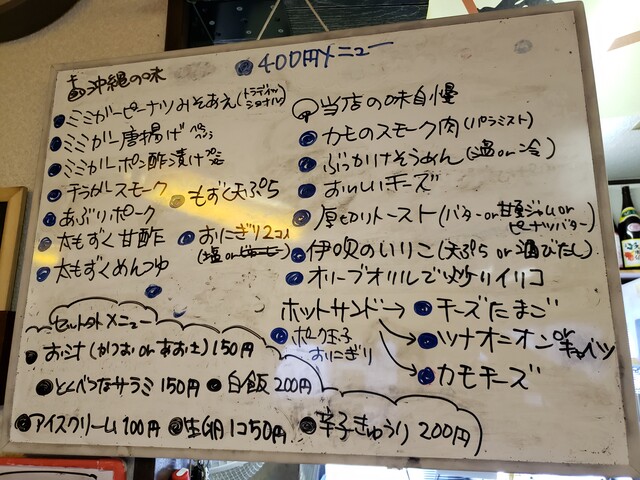 400円メニュー
沖縄の味
ミミガーピーナツみそあえ(トラディッショナル)
ミミガー唐揚げ
ミミガーポン酢漬け
チラガースモーク
もずく天ぷら
あぶりポーク
太もずく甘酢
おにぎり2コ
(塩or
太もずくめんつゆ
当店の味自慢
カモのスモーク肉(パストラミ)
ぶっかけそうめん(温or冷)
おいしいチーズ
厚切りトースト(バターor甘夏ジャムorピーナツバター)
伊吹のいりこ(天ぷらor酒びたし)
オリーブオイルで炒りイリコ
ホットサンド→チーズたまご
ツナオニオンorキャベツ
カモチーズ
ポーク玉子
おにぎり
セルトットメニュー
お汁(かつおorあおさ)150円
とくべつなサラミ150円
白飯200円
アイスクリーム100円
生卵1コ50円
辛子きゅうり200円